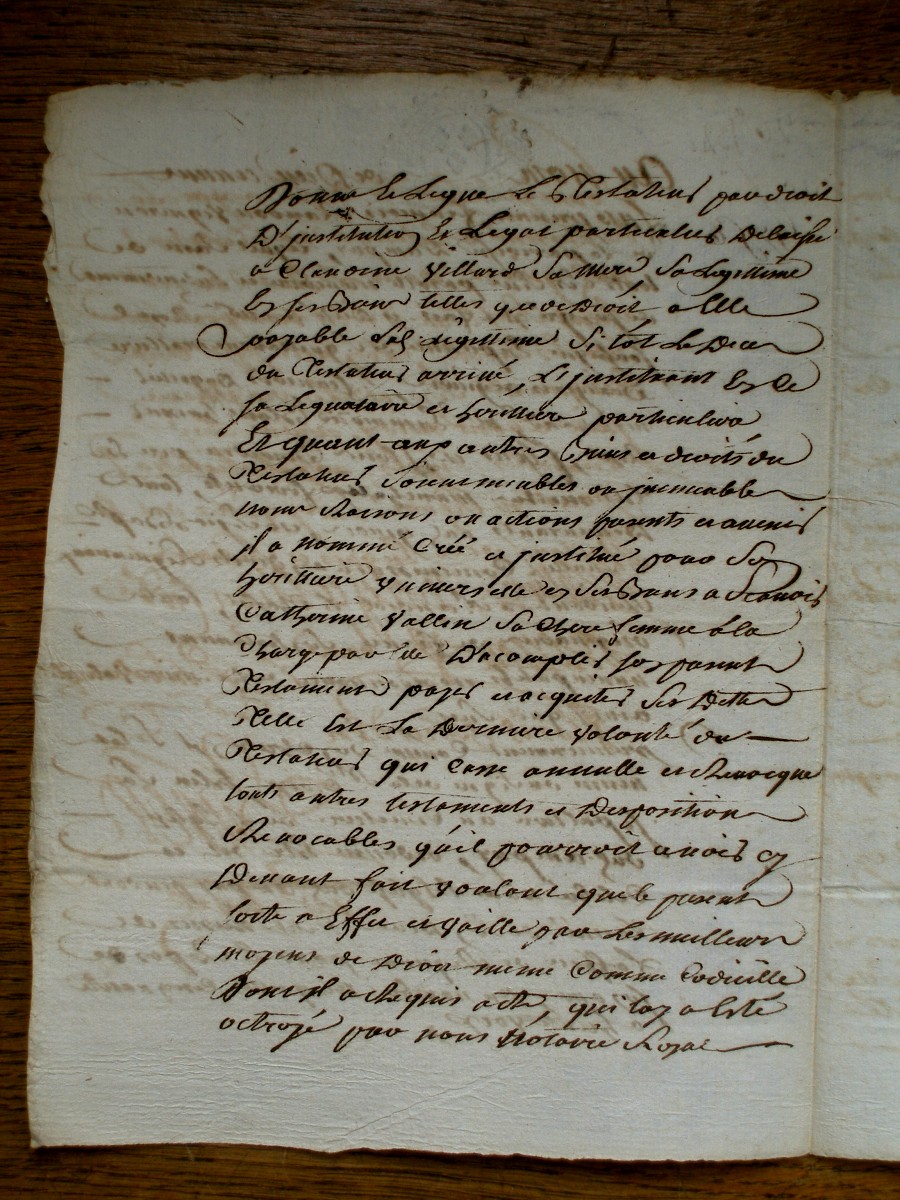 Donne et Legue Le Testateur par droit
D'jnstitution Et Legat particulier Delaissé
a Claudine Villard Sa Mere Sa Legittime
En ses Biens telles que de Droit a Elle
payable Sa Legittime Si tot Le Deces
du Testateur arrivé, L'jnstituant En Ce
sa Legataire et heritiere particuliere
Et quant aux autres Biens et droits du
Testateur Soient meubles ou jmmeuble
noms Raisons ou actions presents et avenir
jl a nommé Créé et jnstitué pour Son
heritiere Universelle en Ses Biens a
Catherine Vallin Sa Chere femme a la
Charge par Elle D'acomplir son present
Testament payer et acquiter Ses Dettes
Telle Est La Derniere Volonté du
Testateur qui Casse annulle et Revocque
touts autres testaments et Disposition
Revocables qu'il pourroit avoir cy
Devant fait Voulant que le present
sorte a Effet et Vaille par Les meilleurs
moyens de Droit meme Comme Codicille
Dont jl a Requis acte, qui luy a Esté
octroyé par nous Nôtaire Royal